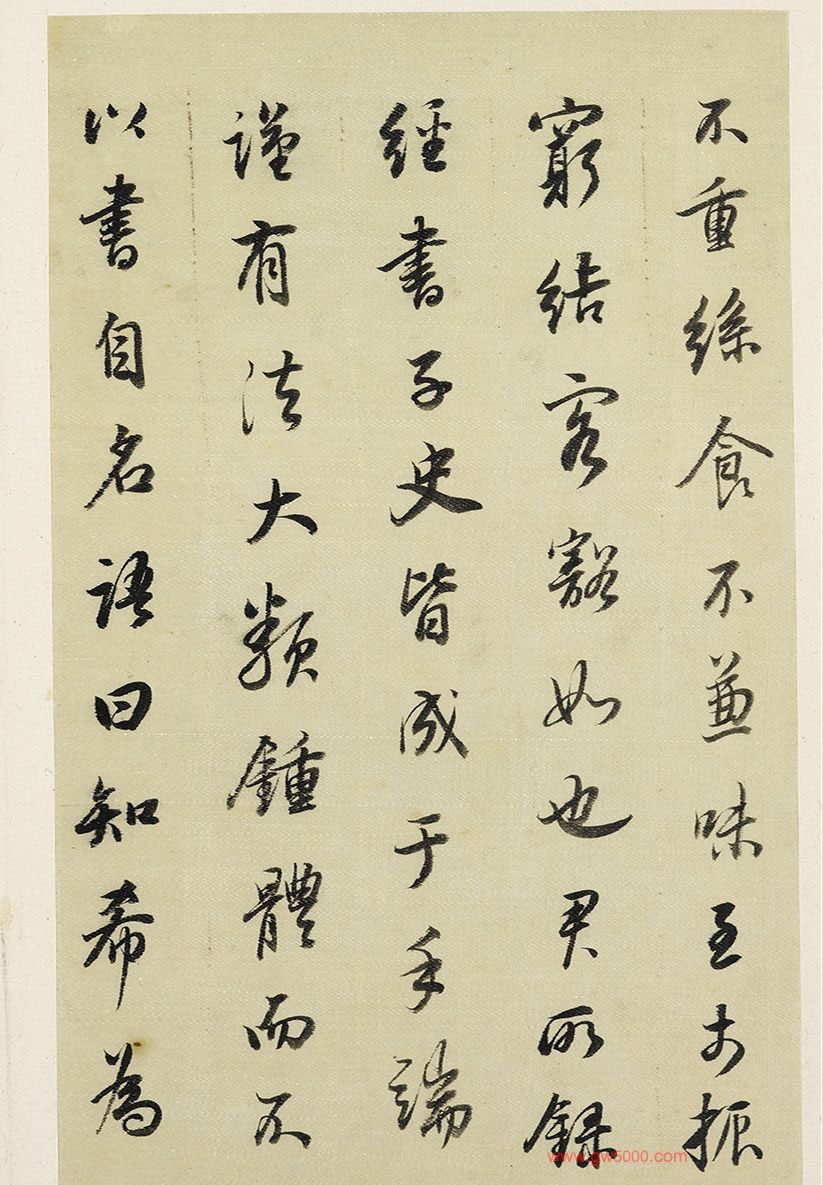 不重絲食不兼味至於振
窮結客豁如也君所錄
經書子史皆成于手端
謹有法大類鍾體而不
以書自名語曰知希為
www.gw5000.com